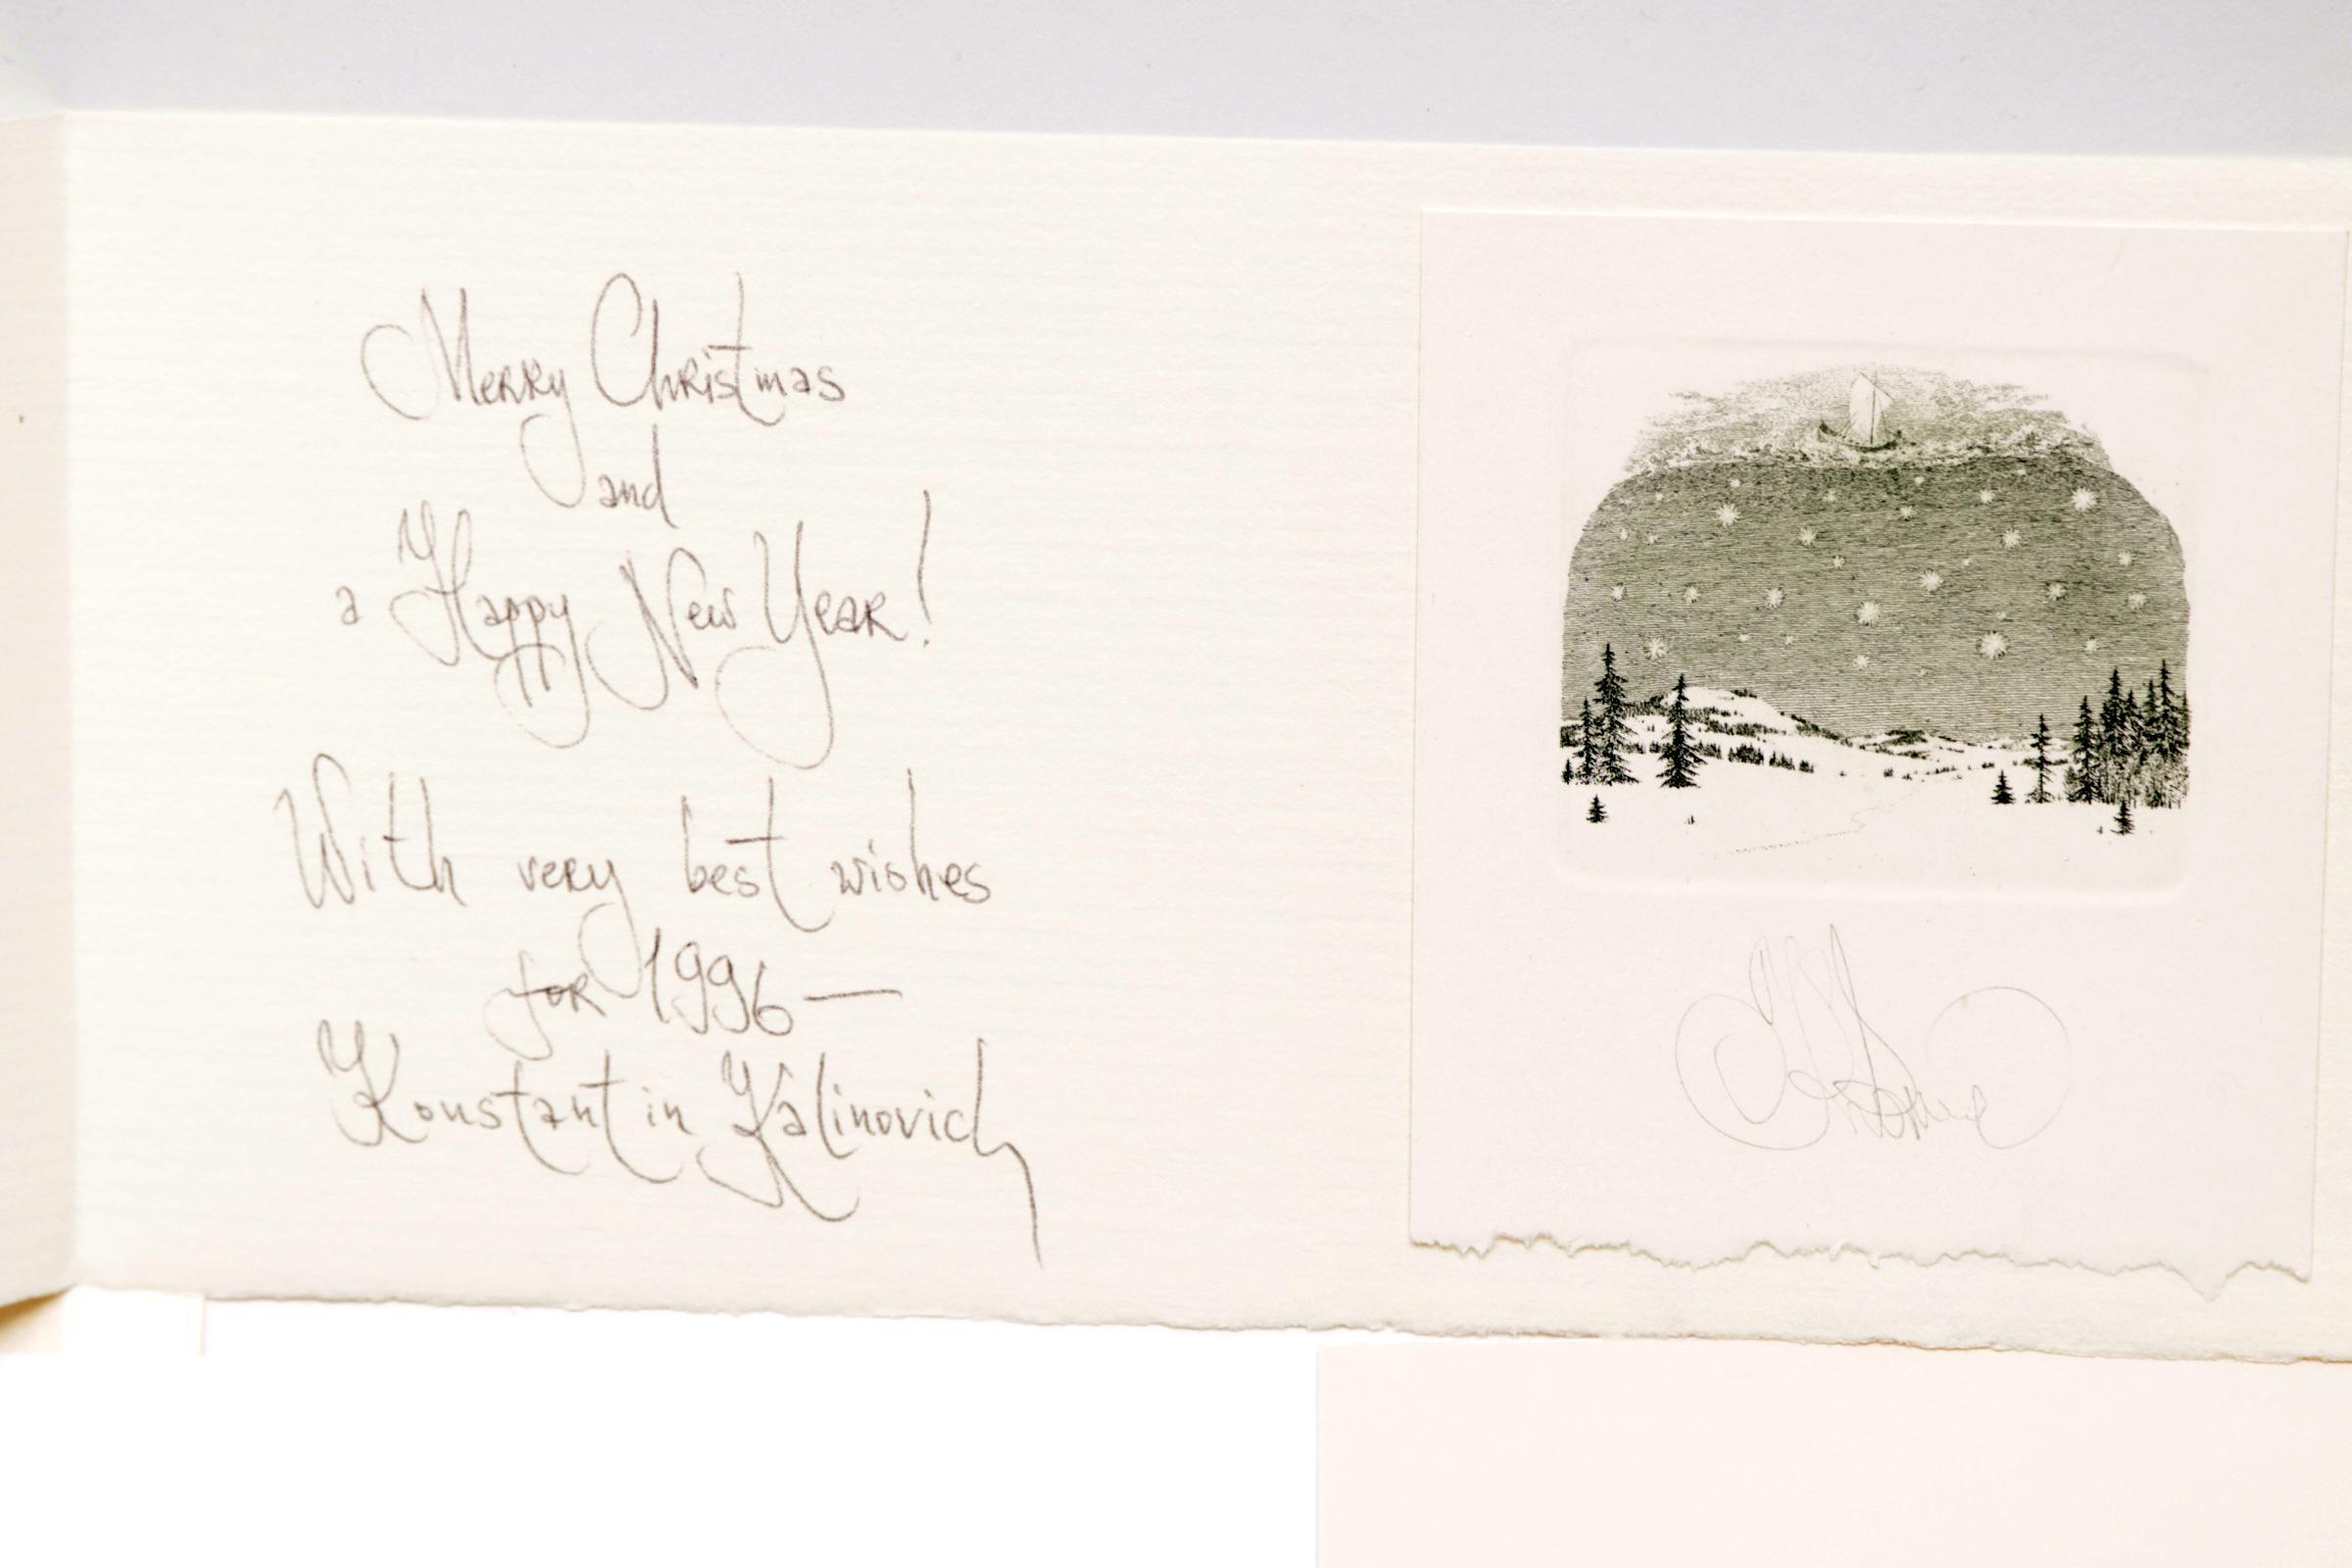 Merry Christmas
and
a Happy New Year!
With very best wishes
for 1996 —
Konstantin Kalinovich